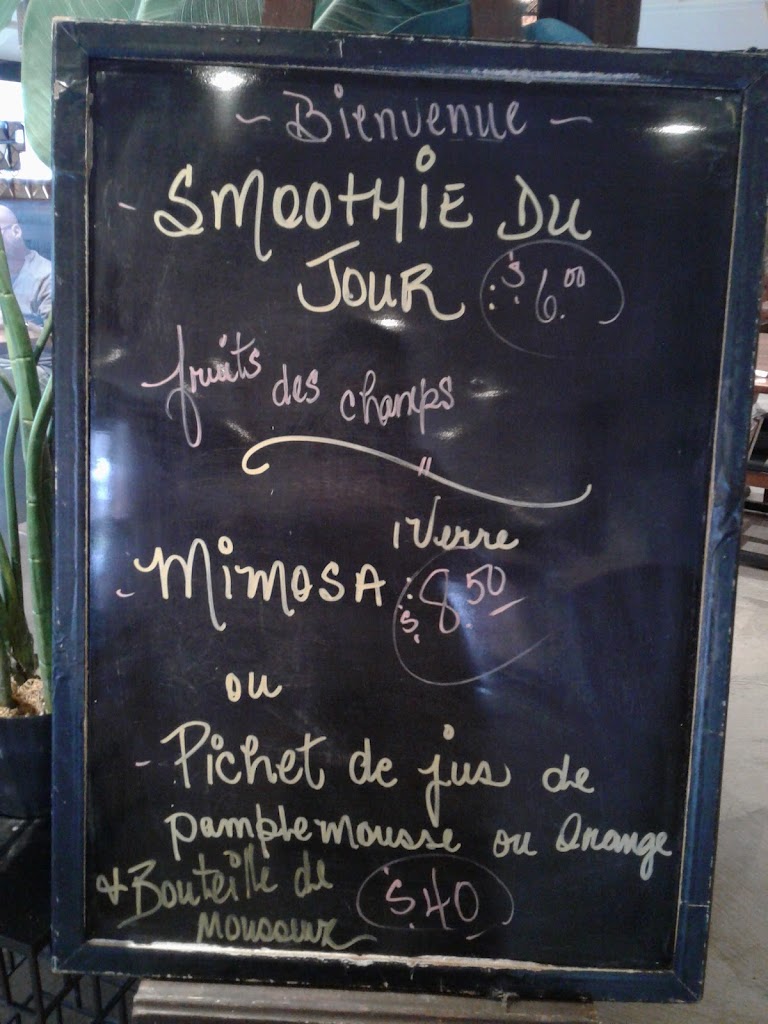 ~ Bienvenue ~
- SMOOTHiE DU
JOUR $6.00
fruits des champs
"
1 Verre
- MiMOSA $8.50
ou
- Pichet de jus de
pamplemousse ou Orange
& Bouteille de
MOUSSEUX $40